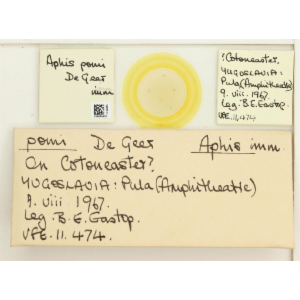 Aphis pomi
De Geer
imm
?Cotoneaster.
YUGOSLAVIA:
Pula (Amphitheatre)
9. viii. 1967.
Leg. B.E. Eastop.
VFE. 11,474
pomi De Geer Aphis imm.
On Cotoneaster?
YUGOSLAVIA: Pula (Amphitheatre)
9. viii 1967.
Leg. B.E. Eastop.
VFE. 11. 474.